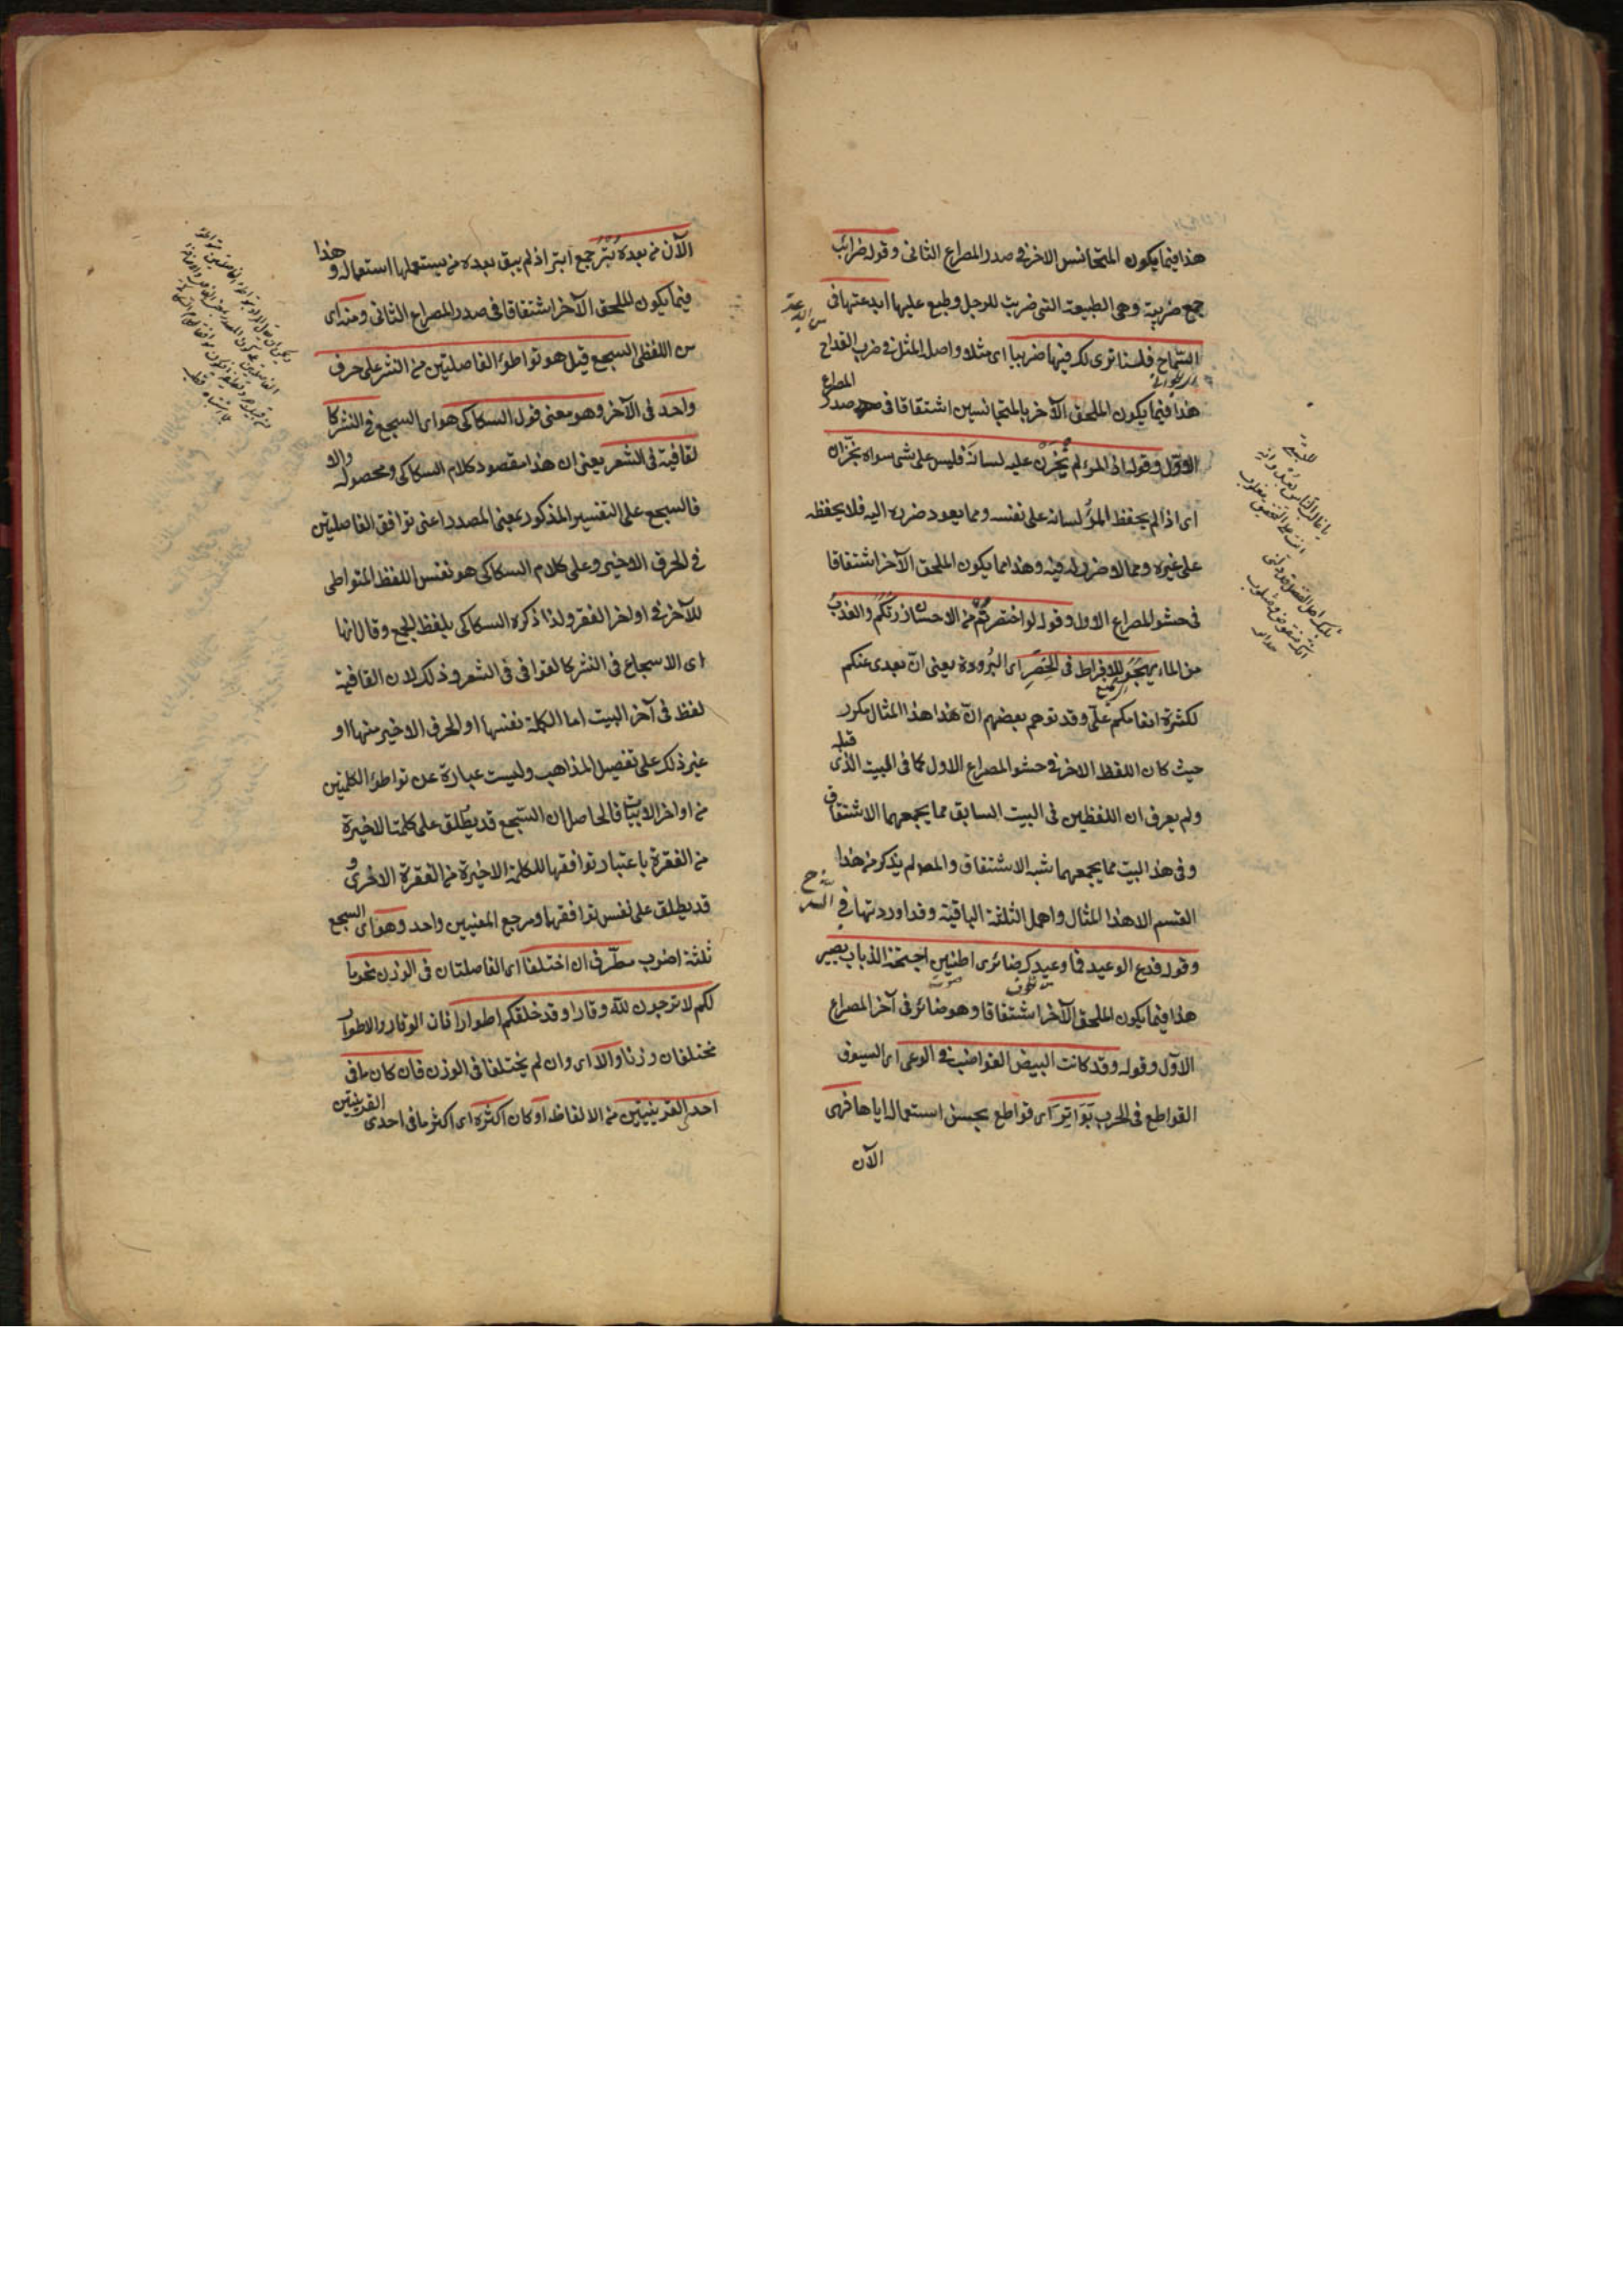 هذا فيما يكون المتجانس الاخر في صدر المصراع الثانى وقوله ضرائب
جمع ضريبة وهى الطبيعة التى ضربت للرجل وطبع عليها ابدعتها فى
السماح فلسنا نرى لك فيها ضريبا اى مثلا واصل المثل فى ضرب القداح
هذا فيما يكون الملحق الآخر بالمتجانسين اشتقاقا فى صدر المصراع
الاول وقوله اذا المرء لم يَخْزُنْ عليه لسانَهُ فليس على شئ سواه بخزّان
اى اذا لم يحفظ المرؤ لسانه على نفسه ومما يعود ضرره اليه فلا يحفظه
على غيره ومما لا ضرر له فيه وهذا مما يكون الملحق الآخر اشتقاقا
فى حشو المصراع الاول وقوله لو اختصرتُمْ من الاحسان زرتكم والعذبُ
من الماء يهجر للافراط فى الخَصِرِ اى البُرودة يعنى انّ بعدى عنكم
لكثرة انعامكم علىّ وقد توهم بعضهم انّ هذا المثال مكرر
حيث كان اللفظ الاخر فى حشو المصراع الاول كما فى البيت الذى قبله
ولم يعرف ان اللفظين فى البيت السابق مما يجمعهما الاشتقاق
وفى هذا البيت مما يجمعهما شبه الاشتقاق والمصـ لم يذكر من هذا
القسم الا هذا المثال واهمل الثلثة الباقية وقد اوردتها فى الشرح
وقوله فدع الوعيد فما وعيدك ضائرى اطنين اجنحة الذباب يضير
هذا فيما يكون الملحق الآخر اشتقاقا وهو ضائر فى آخر المصراع
الاوّل وقوله وقد كانت البيض القواضب فى الوغى اى السيوف
القواطع فى الحرب بَوَاتِرَ اى قواطع بحسن استعماله اياها فهى
الآن
الآن من بعده بُتْرُ جمع ابتر اذ لم يبق بعده من يستعملها استعماله وهذا
فيما يكون الملحق الآخر اشتقاقا فى صدر المصراع الثانى ومنه اى
من اللفظى السجع قيل هو تواطؤ الفاصلتين من النثر على حرف
واحد فى الآخر وهو معنى قول السكاكى هو اى السجع فى النثر كا
لقافية فى الشعر يعنى ان هذا مقصود كلام السكاكى ومحصوله والا
فالسجع على التفسير المذكور بمعنى المصدر اعنى توافق الفاصلتين
فى الحرف الاخير وعلى كلام السكاكى هو نفس اللفظ المتواطى
للآخر فى اواخر الفقر ولذا ذكره السكاكى بلفظ الجمع وقال انها
اى الاسجاع فى النثر كالقوافى فى الشعر وذلك لان القافية
لفظ فى آخر البيت اما الكلمة نفسها او الحرف الاخير منها او
غير ذلك على تفصيل المذاهب وليست عبارة عن تواطؤ الكلمتين
من اواخر الابيات فالحاصل ان السجع قد يطلق على كلمتا الاخيرة
من الفقرة باعتبار توافقها للكلمة الاخيرة من الفقرة الاخرى و
قد يطلق على نفس توافقها ومرجع المعنيين واحد وهو اى السجع
ثلثة اضرب مطرّف ان اختلفا اى الفاصلتان فى الوزن نحو ما
لكم لا ترجون لله وقارا وقد خلقكم اطوارا فان الوقار والاطوار
مختلفان وزنا والا اى وان لم يختلفا فى الوزن فان كان ما فى
احد القرينتين من الالفاظ او كان اكثره اى اكثر ما فى احدى القرينتين